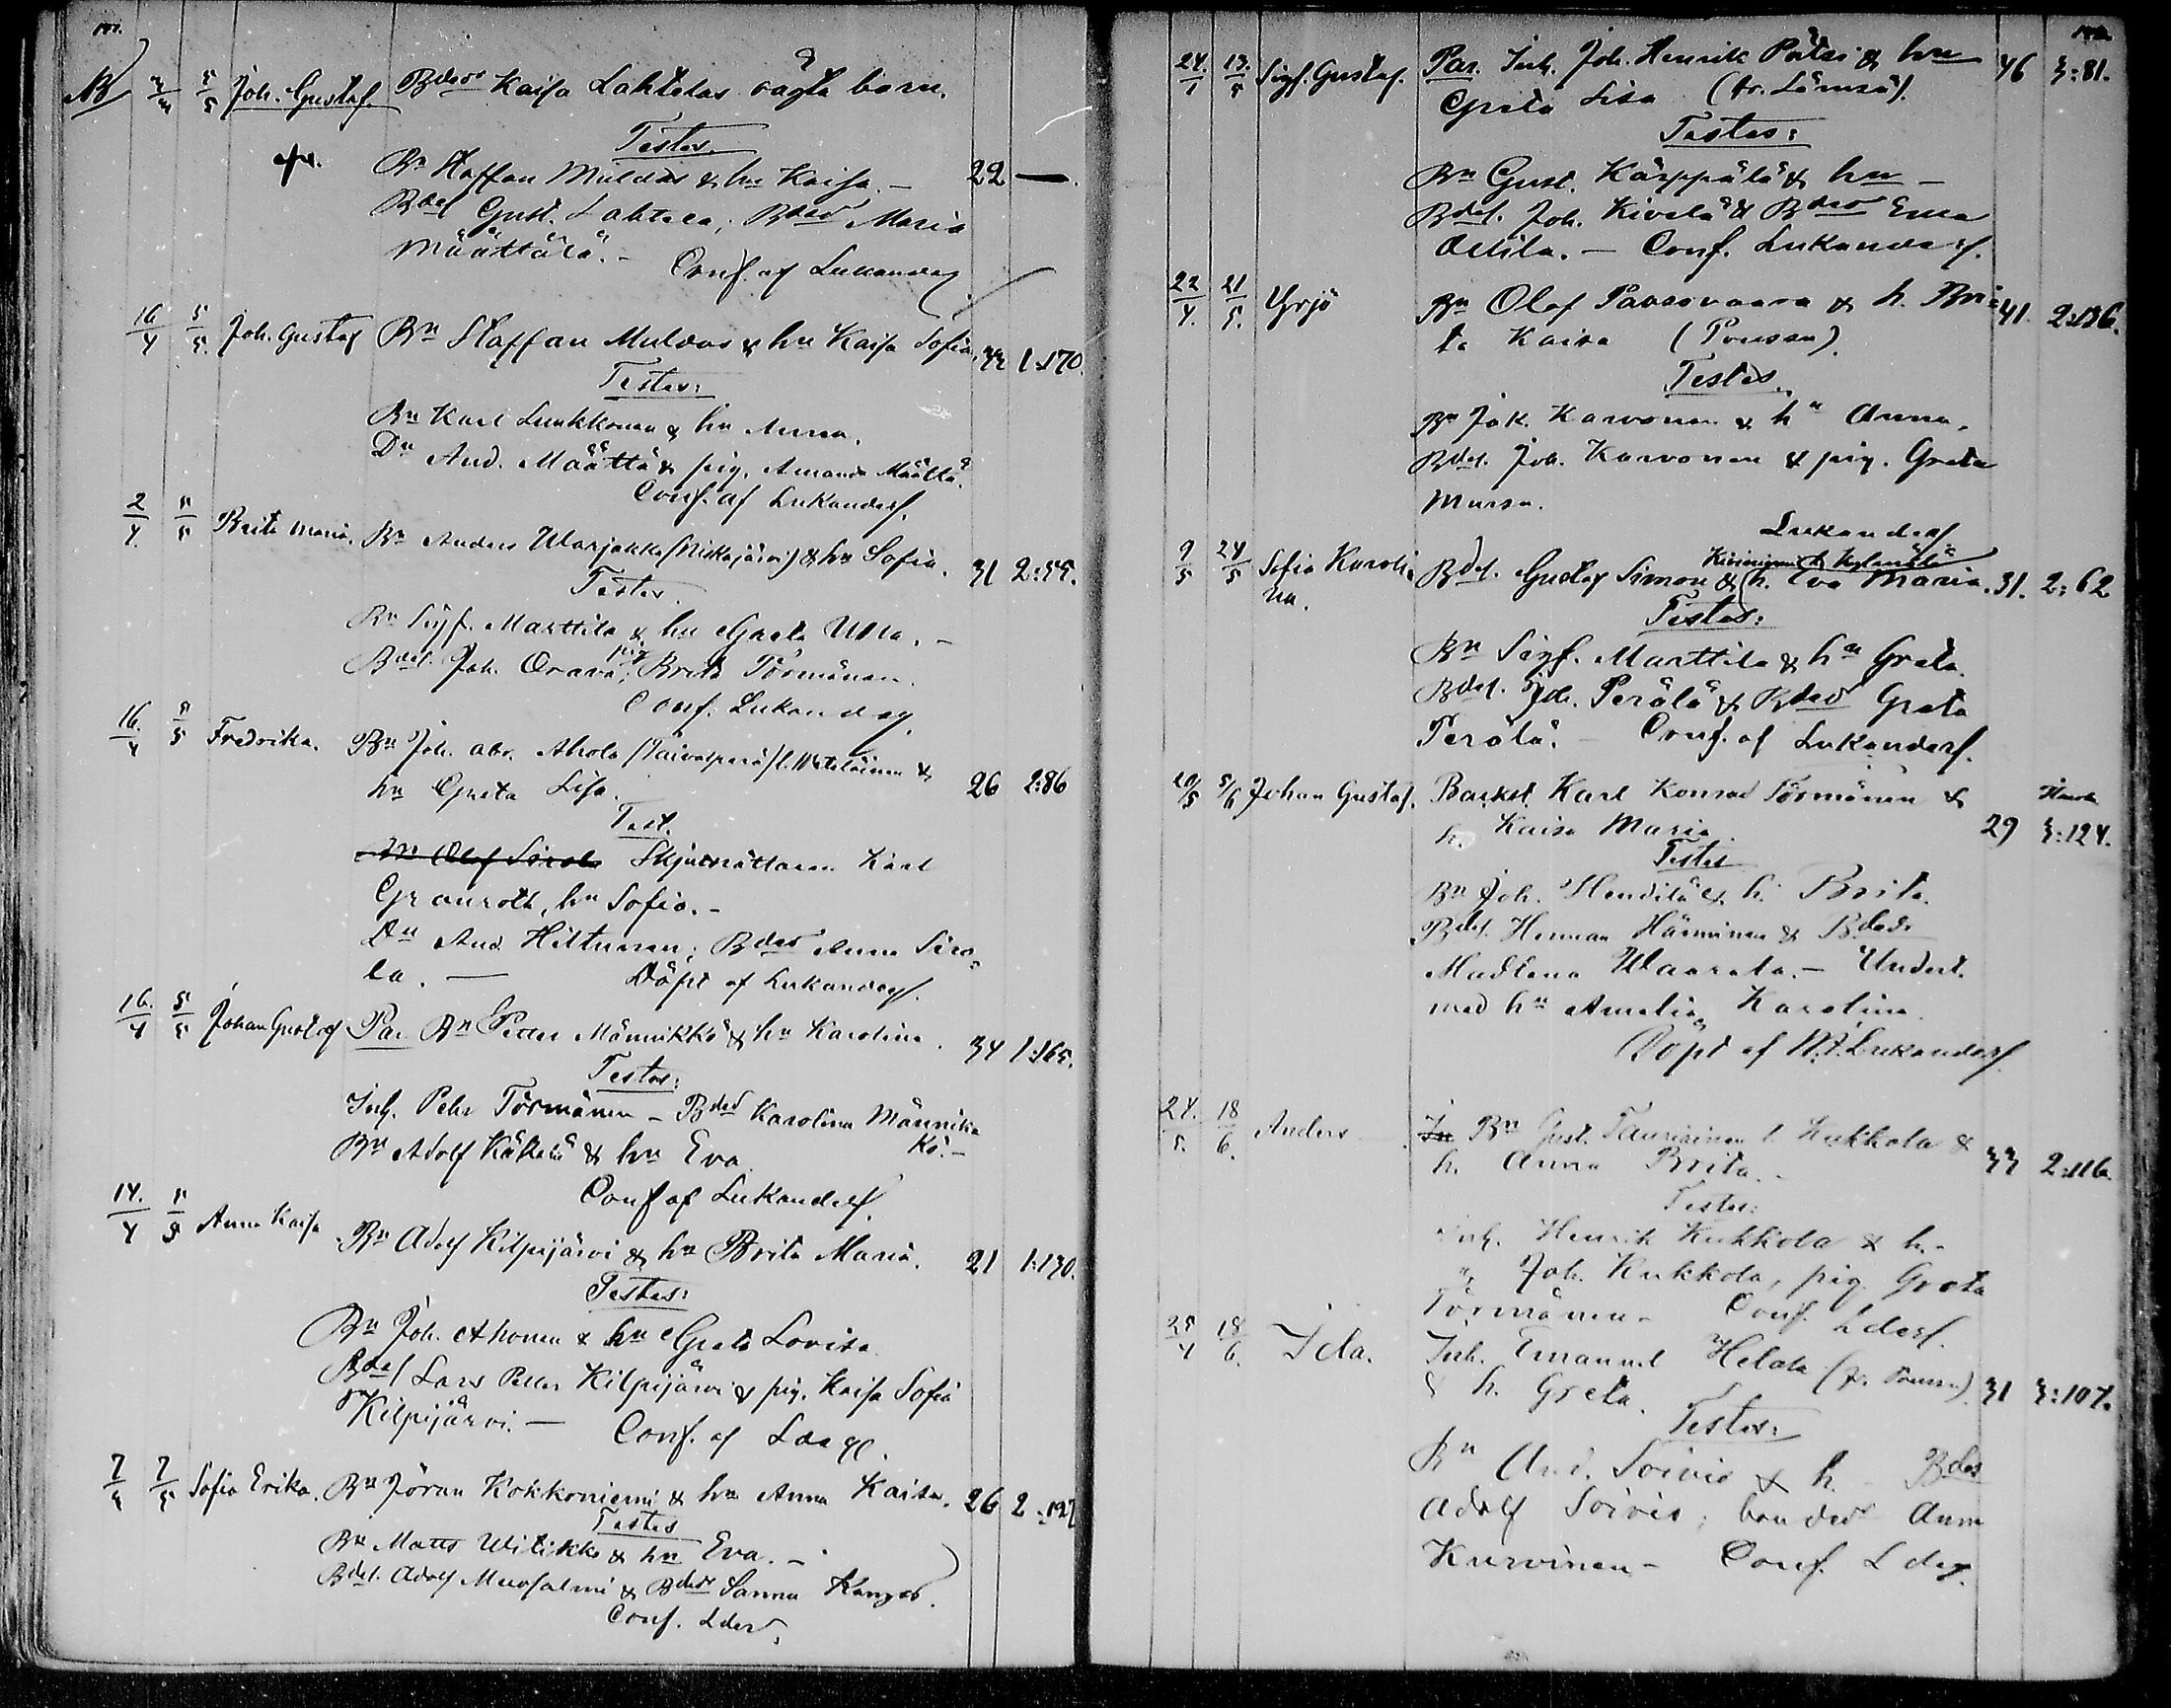 2/3 5/5 Joh. Gustaf. Bdodr Kaisa Lahtelas oägta barn.
Testes.
Bn Staffan Muldas & hu Kaisa. — 22 —.
Bdes Gust. Lahtela; Bdodr Maria
Määttälä. –
Conf. af Lukander
16/4 5/5. Joh. Gustaf Bn Staffan Muldas & hu Kaisa Sofia, 1:170.
Testes:
Bn Karl Lunkkonen & hu Anna.
Dn And. Määttä & pig. Amanda Määttä.
Conf. af Lukander.
2/4. 5/5 Brita Maria. Bn Anders Warjakka (Niskajärvi) & hu Sofia. 31 2:55.
Testes.
Bn Sigf. Marttila & hu Greta Ulla. –
Bdes. Joh. Orava; pig Brita Törmänen.
Conf. Lukander
16./4 5/5 Fredrika. Bn Joh. Abr. Ahola (Taivalperä) l. &
hu Greta Lisa. 26 2:86
Test.
Bn Olof Sirola Skjutsrättaren Karl
Granroth, hu Sofia. –
Dn And. Hiltunen; Bdodr Anna Siro-
la. — Döpt af Lukander.
16./4 5/5 Johan Gustaf Par. Bn Petter Männikkö & hu Karolina. 34 1:165.
Testes:
Inh. Pehr Törmänen – Bdodr Karolina Männik-
kö. –
Bn Adolf Käkelä & hu Eva
Conf af Lukander.
14./4 5/5 Anna Kaisa Bn Adolf Kilpijärvi & hu Brita Maria. 21 1:130.
Testes:
Bn Joh. Ahonen & hu Greta Lovisa.
Bdes Lars Petter Kilpijärvi & pig. Kaisa Sofia
Kilpijärvi. — Conf. af
7/4 7/5 Sofia Erika. Bn Jöran Kokkoniemi & hu Anna Kaisa. 26 2:127
Testes
Bn Matts Witikka & hu Eva. –
Bdes. Adolf Mursalmi & Bdodr Sanna Kangas.
Conf. Lder.
24./1 13./5 Sigf. Gustaf. Par. Inh. Joh. Henrik Pätsi & hu 46 3:81.
Greta Lisa (fr. Lämsä).
Testes:
Bn Gust. Karppälä & hu –
Bdes. Joh. Kivelä & Bdodr Emma
Ollila. – Conf. Lukander.
22/4. 21/5. Yrjö Bn Olof Paasovaara & h. Bri- 41. 2:136.
ta Kaisa (Poussu).
Testes.
Bn Jak. Karvonen & hu Anna.
Bdes. Joh. Karvonen & pig. Greta
Mursu.
Lukander
9/5 24/5 Sofia Karoli-
na. Bdes. Gustaf Simon & h. Eva Maria. 31. 2:62
Testes:
Bn Sigf. Marttila & hu Greta.
Bdes. Joh. Perälä & Bdodr Greta
Perälä. – Conf. af Lukander.
20/5 5/6 Johan Gustaf. Backst. Karl Konrad Törmänen &
h. Kaisa Maria 29 3:124.
Testes
Bn Joh. Heudilä & h. Brita.
Bdes. Herman Hänninen & Bdodr
Madlena Waarala. – Undert.
med hu Amelia Karolina.
Döpt af Lukander.
24./5. 18/6. Anders Bn Gust. Tauriainen l. Kukkola &
h. Anna Brita. – 33 2:116.
Testes:
Inh. Henrik Kukkola & h. –
" Joh. Kukkola, pig. Greta
Törmänen – Conf. Lder.
25/4 18/6. Ida. Inh. Emanuel Helala (fr. Poussu)
& h. Greta. 31 3:107.
Testes:
Bn And. Soivio & h. Bdes
Adolf Soivio; bondedr Anna
Kurvinen – Conf. Lder.